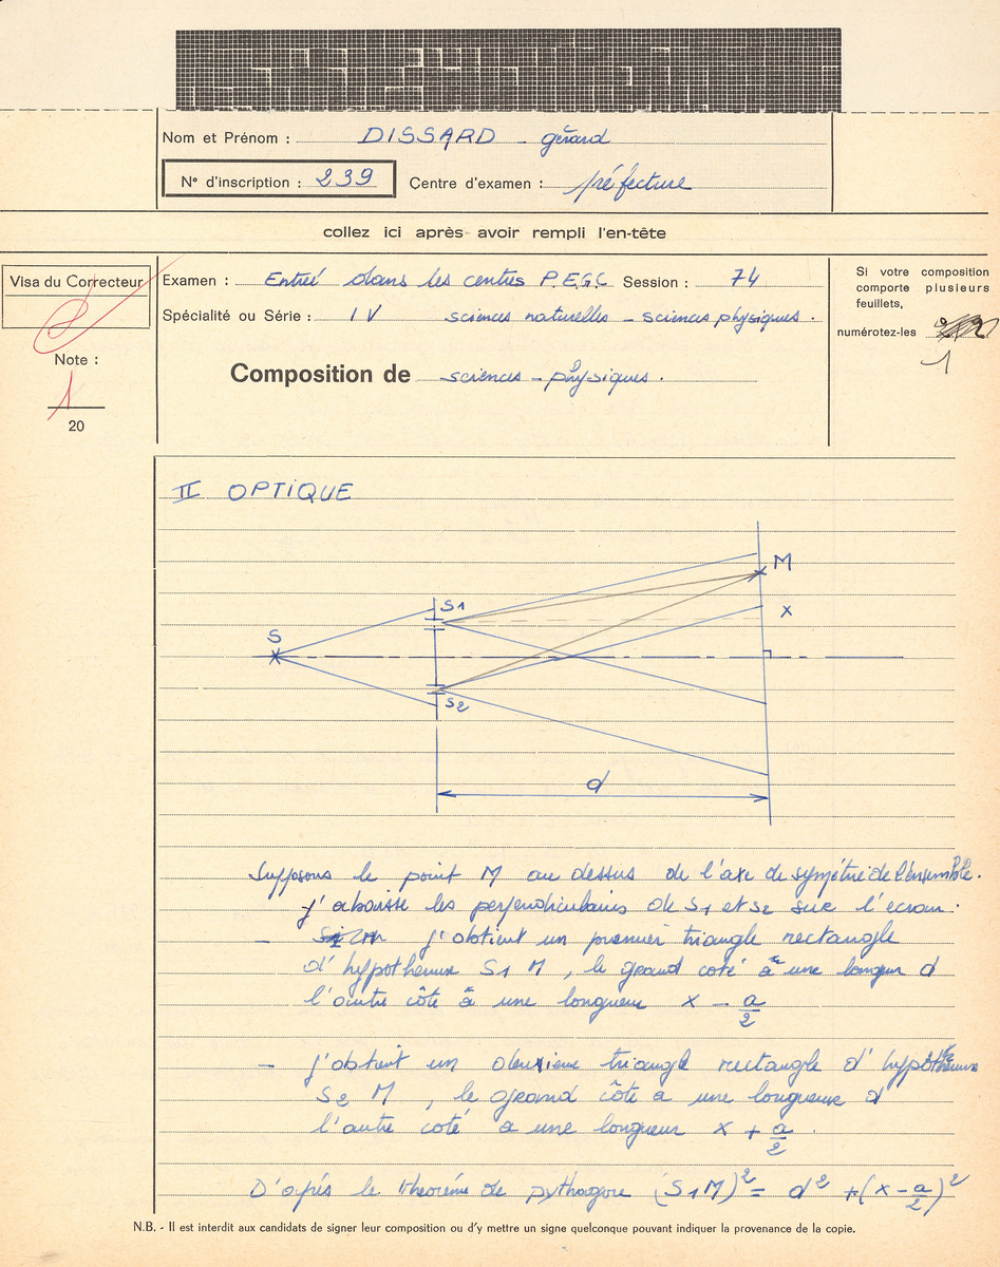 Nom et Prénom : DISSARD - gérard
N° d'inscription : 239 Centre d'examen : préfecture
collez ici après avoir rempli l'en-tête
Visa du Correcteur
Note :
1
20
Examen : Entrée dans les centres P.E.G.C Session : 74
Spécialité ou Série : IV sciences naturelles - sciences physiques.
Composition de sciences - physiques.
Si votre composition
comporte plusieurs
feuillets,
numérotez-les
1
II OPTIQUE
M
S1
x
S
S2
d
Supposons le point M au dessus de l'axe de symétrie de l'ensemble.
j'abaisse les perpendiculaires de S1 et S2 sur l'ecran.
- j'obtient un premier triangle rectangle
d'hypothenuse S1 M, le grand coté à une longueur d
l'autre côté à une longueur x - a/2
- j'obtient un deuxieme triangle rectangle d'hypothenuse
S2 M, le grand côté a une longueur d
l'autre coté a une longueur x + a/2.
D'après le theoréme de pythagore (S1M)² = d² + (x - a/2)²
N.B. - Il est interdit aux candidats de signer leur composition ou d'y mettre un signe quelconque pouvant indiquer la provenance de la copie.